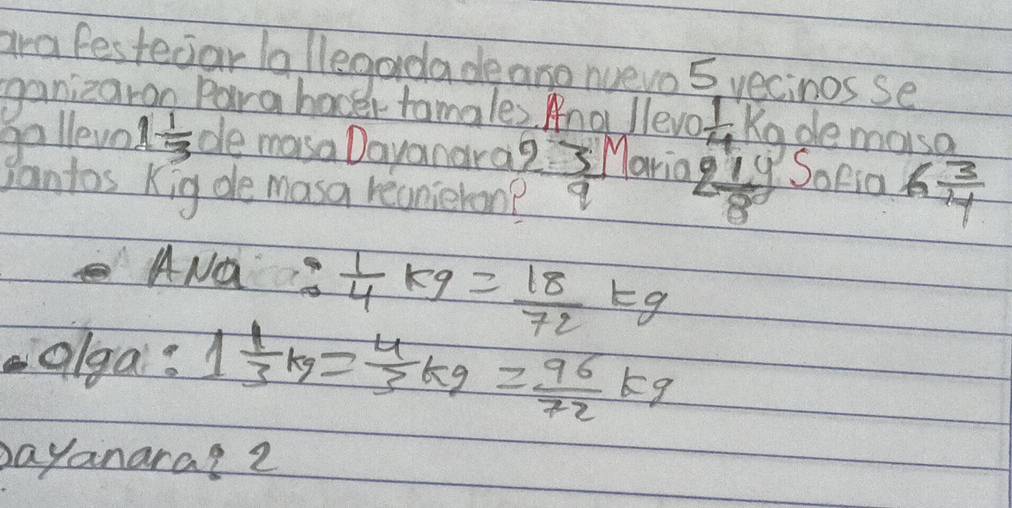 ara festejar la llegada de ano nuevo 5 vecinos se
ganizaron Para hacer tamales Ana llevo 1/4 Kg de masa
ga llevo 1 1/3 de masa Dayanara 2 3/9 Maria 2 1/8 y Sofia 6 3/4
santos Kig de masa reunieron?
ANa : 1/4 kg = 18/72 kg
olga: 1 1/3 kg = 4/3 kg = 96/72 kg
Dayanara: 2